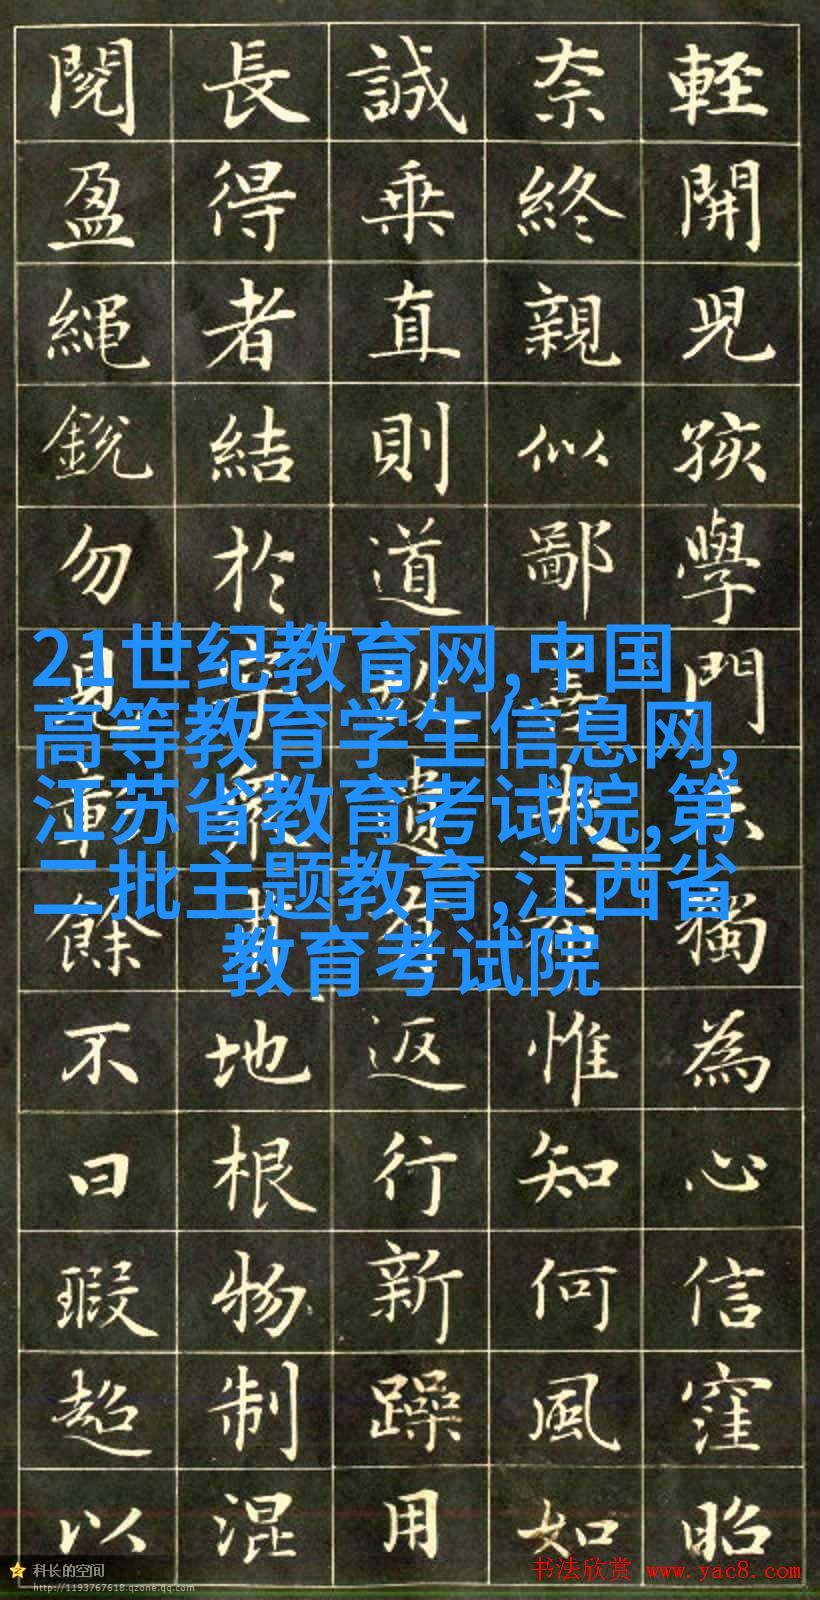 閱 長 誠 奈 輊
盈 得 乘 終 開
繩 者 直 親 児
銳 結 則 似 孩
勿 於 道 鄙 學
21世纪教育网,中国
高等教育学生信息网,
江苏省教育考试院,第
二批主题教育,江西省
教育考试院
門
餘 獨
不 地 返 惟 為
曰 根 行 知 心
瑕 物 新 何 信
超 制 躁 風 窪
以 混 用 如 昭
科长的空间
http://1193767618.qzone.qq.com
书法欣赏 www.yac8.com